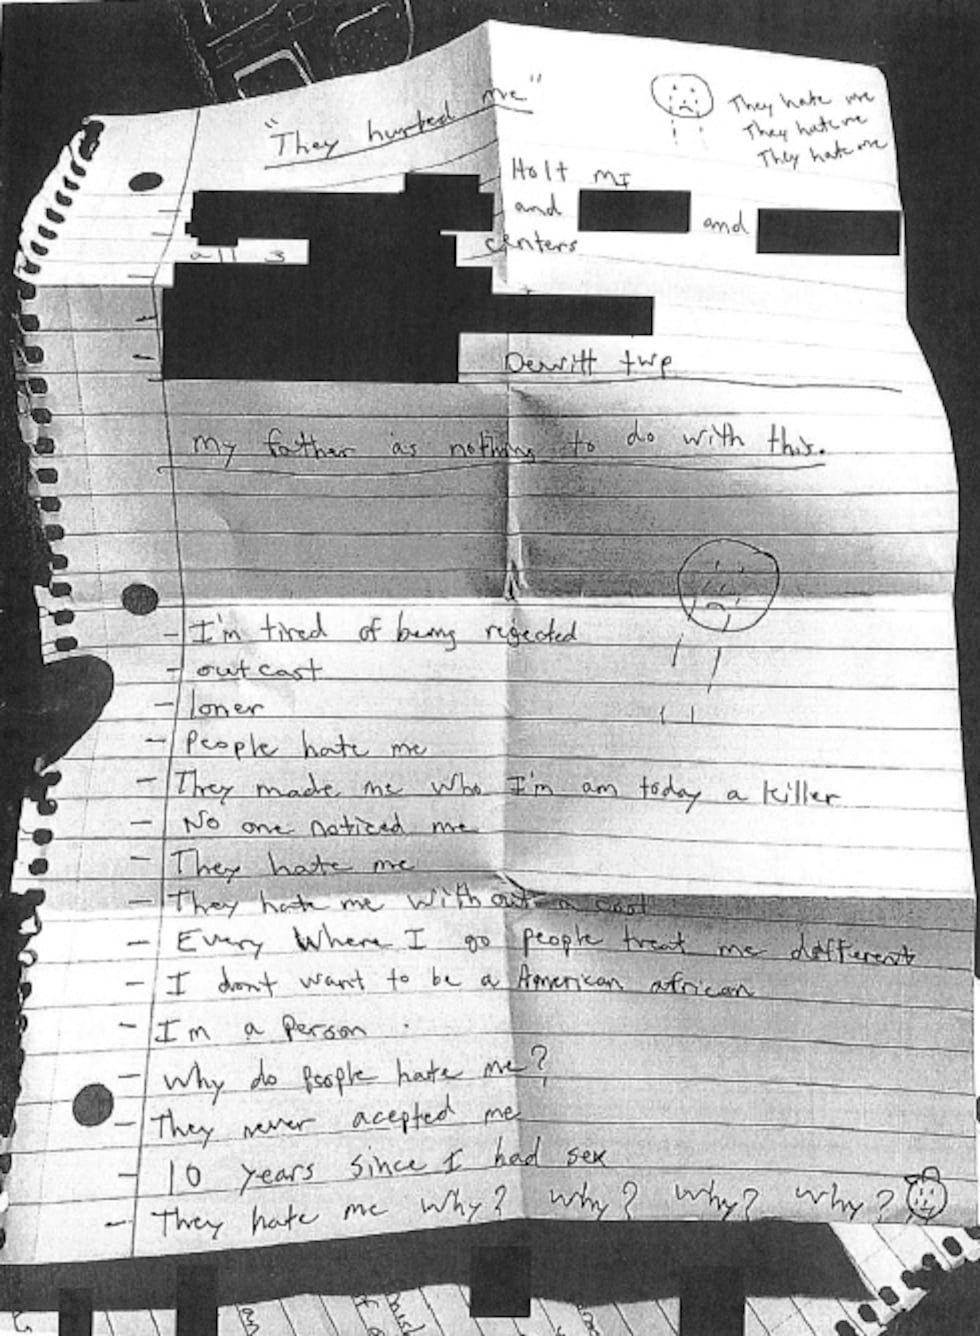 "They hurted me"
They hate me
They hate me
They hate me
Holt MI
and and
centers
all 3
Dewitt twp
My father as nothing to do with this.
- I'm tired of being rejected
- outcast
- loner
- People hate me
- They made me who I'm am today a killer
- No one noticed me
- They hate me
- They hate me with out a cast
- Every Where I go people treat me different
- I don't want to be a American african
- I'm a Person
- Why do people hate me?
- They never acepted me
- 10 years since I had sex
- They hate me why? why? why? why?